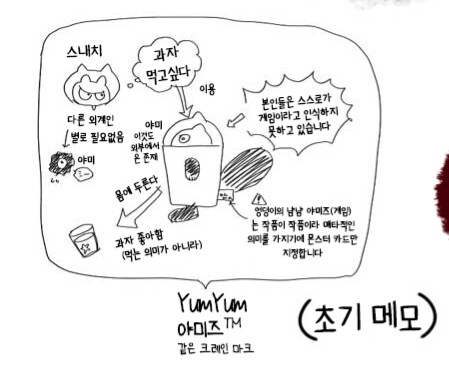 스내치
다른 외계인
별로 필요없음
야미
과자
먹고싶다
이용
야미
이것도
외부에서
온 존재
본인들은 스스로가
게임이라고 인식하지
못하고 있습니다
몸에 두른다
과자 좋아함
(먹는 의미가 아니라)
엉덩이의 냠냠 야미즈(게임)
는 작품이 작품이라 메타적인
의미를 가지기에 몬스터 카드만
지정합니다
YumYum
야미즈™
같은 크레인 마크
(초기 메모)